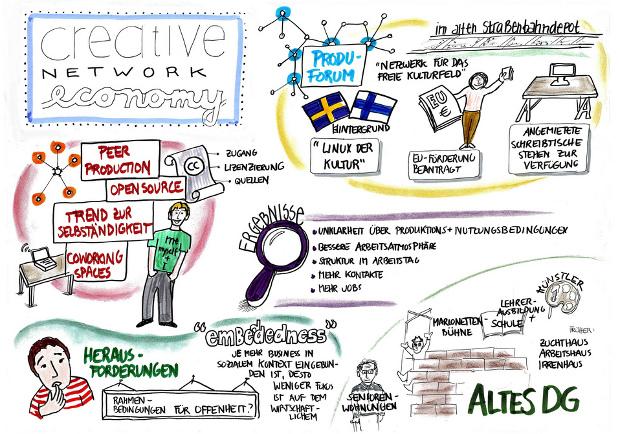 creative
NETWORK
economy
PRODU-
FORUM
im alten Straßenbahndepot
"NETWERK FÜR DAS
FREIE KULTURFELD"
EU
€
HINTERGRUND
"LINUX DER
KULTUR"
EU-FÖRDERUNG
BEANTRAGT
ANGEMIETETE
SCHREIBTISCHE
STEHEN ZUR
VERFÜGUNG
PEER
PRODUCTION
OPEN SOURCE
TREND ZUR
SELBSTÄNDIGKEIT
COWORKING
SPACES
CC
ZUGANG
LIZENZIERUNG
QUELLEN
ERGEBNISSE
• UNKLARHEIT ÜBER PRODUKTIONS+NUTZUNGSBEDINGUNGEN
• BESSERE ARBEITSATMOSPHÄRE
• STRUKTUR IM ARBEITSTAG
• MEHR KONTAKTE
• MEHR JOBS
HERAUS-
FORDERUNGEN
RAHMEN-
BEDINGUNGEN FÜR OFFENHEIT?
"embededness"
JE MEHR BUSINESS IN
SOZIALEM KONTEXT EINGEBUN-
DEN IST, DESTO
WENIGER FOKUS
IST AUF DEM
WIRTSCHAFT-
LICHEM
KÜNSTLER
LEHRER-
AUSBILDUNG +
SCHULE
MARIONETTEN
BÜHNE
FRÜHER:
ZUCHTHAUS
ARBEITSHAUS
IRRENHAUS
SENIOREN-
WOHNUNGEN
ALTES DG